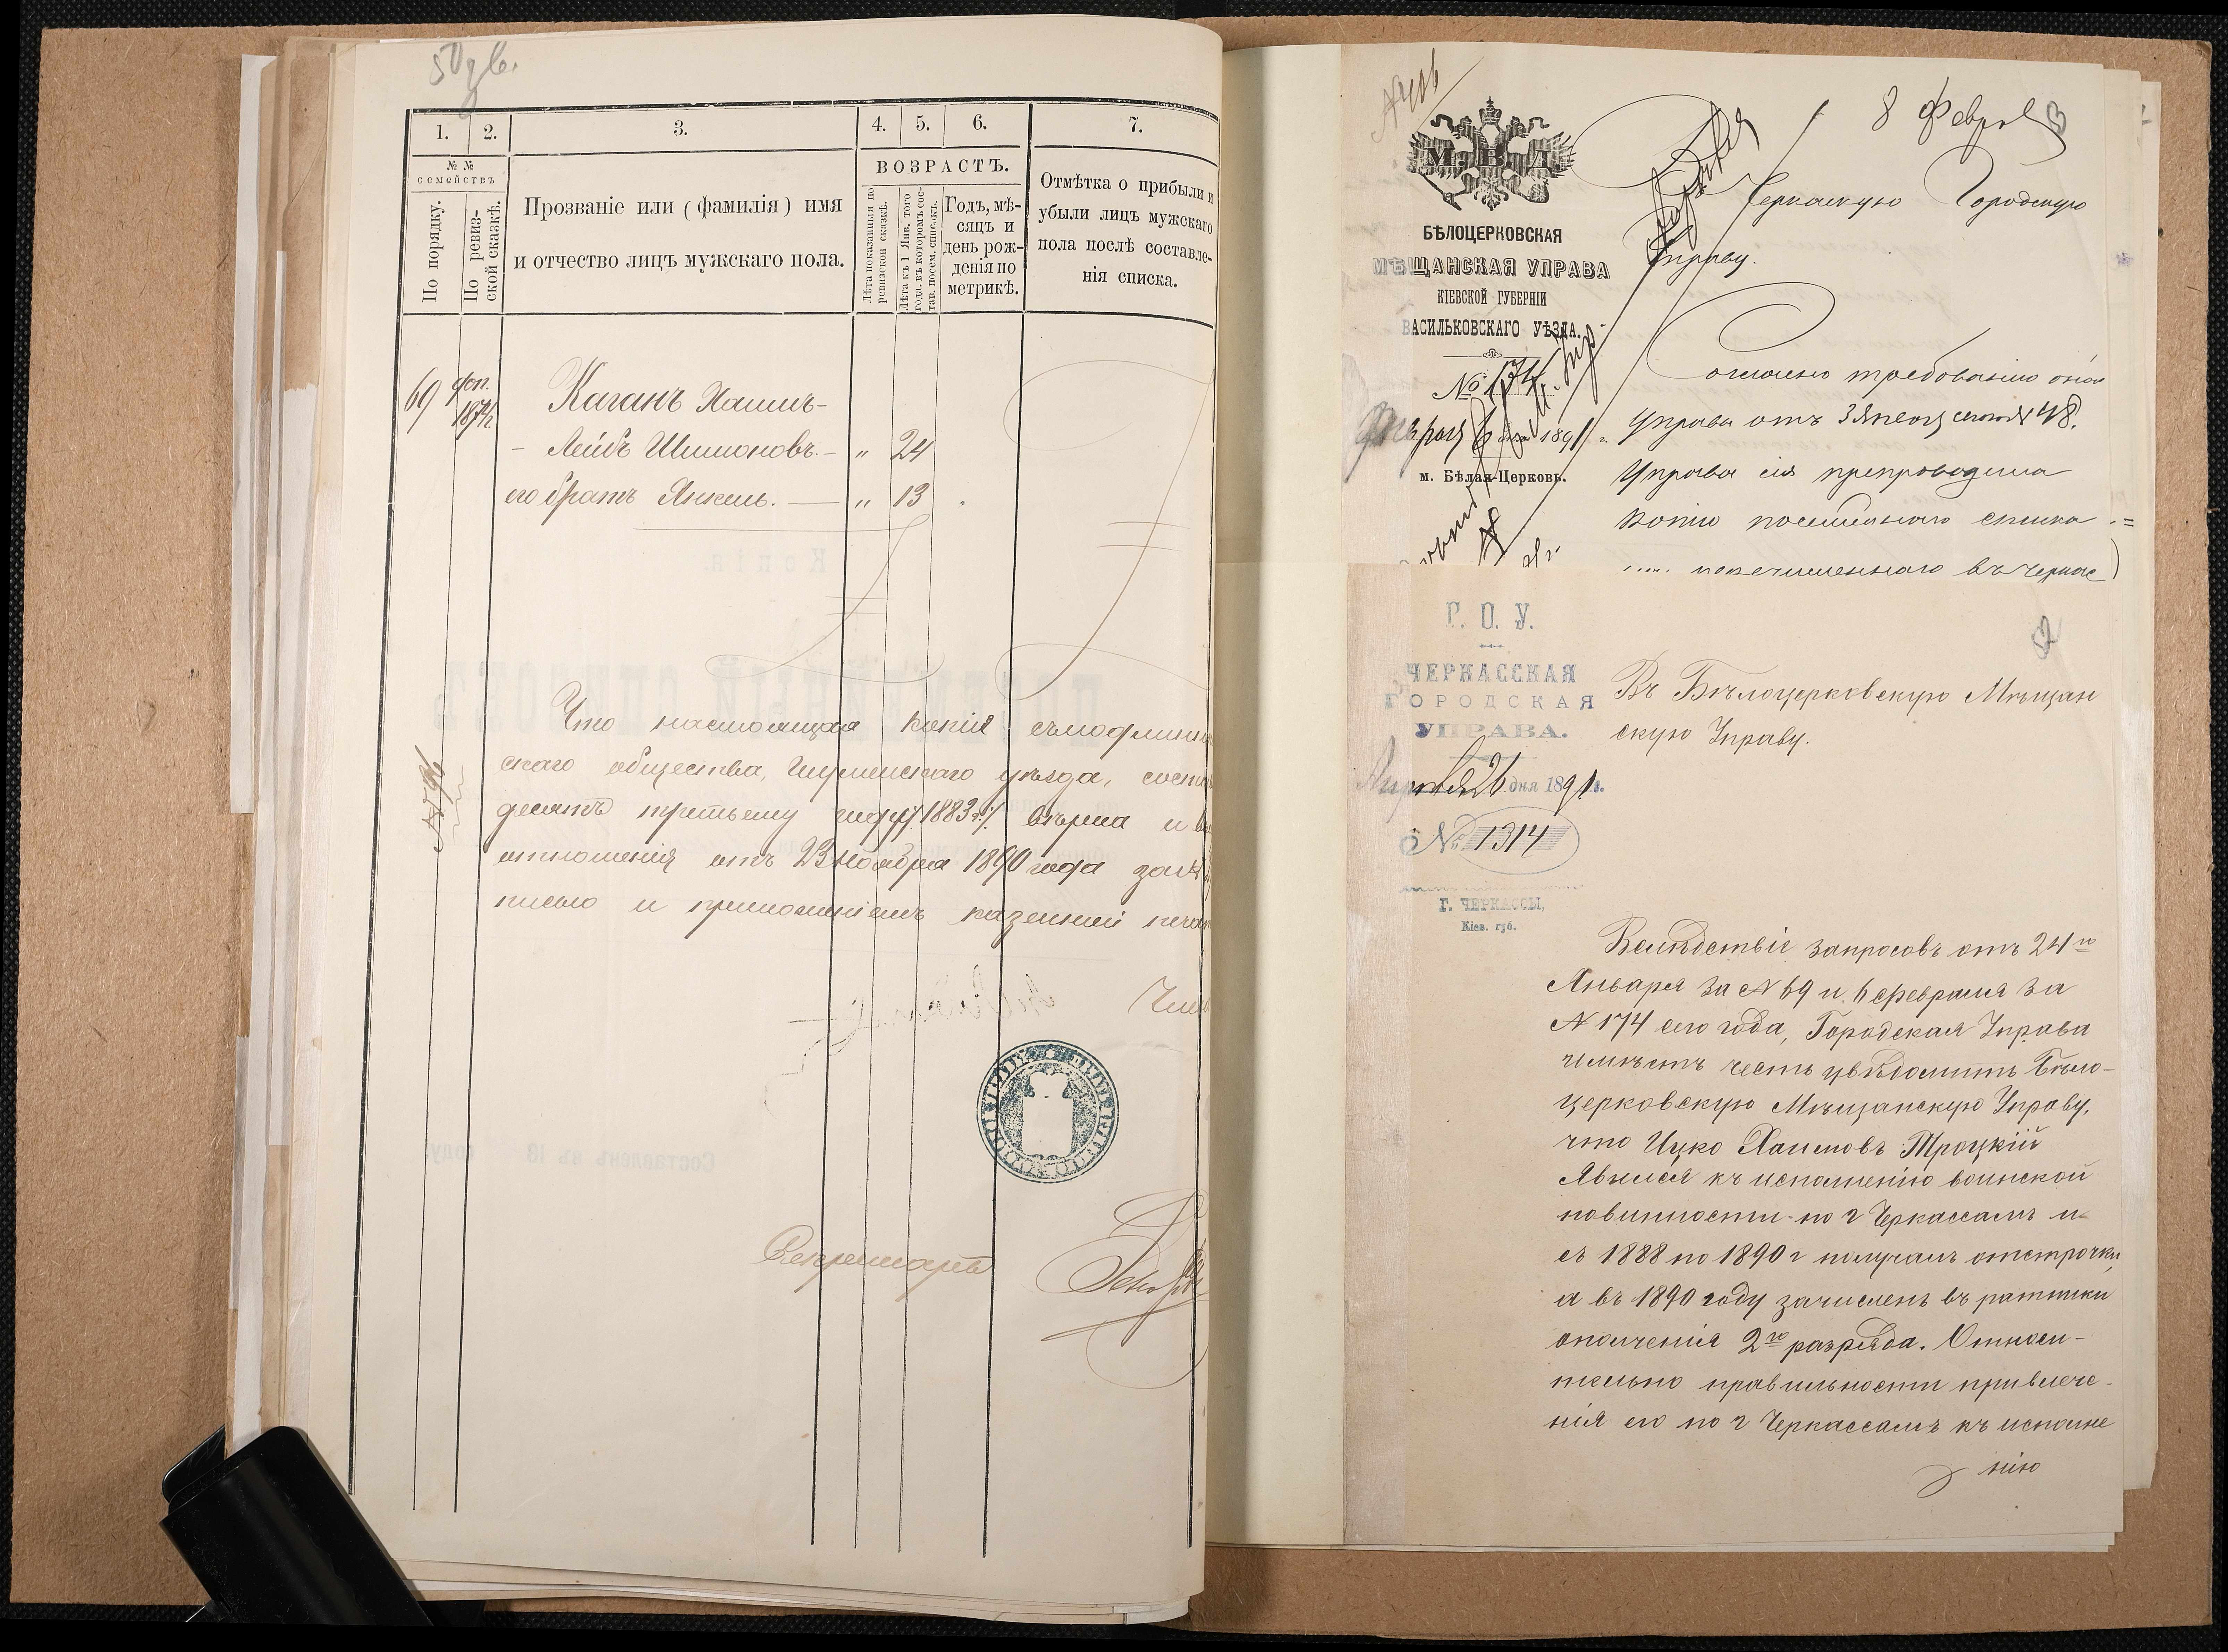 50
1.
2.
3.
4.
5.
6.
7.
№ №
семействъ
По порядку.
По ревиз-
ской сказкѣ.
Прозваніе или (фамилія) имя
и отчество лицъ мужскаго пола.
ВОЗРАСТЪ.
Лѣта показанныя по
ревизской сказкѣ.
Лѣта къ 1 Янв. того
года, въ которомъ сос-
тав. посем. списокъ.
Годъ, мѣ-
сяцъ и
день рож-
денія по
метрикѣ.
Отмѣтка о прибыли и
убыли лицъ мужскаго
пола послѣ составле-
нія списка.
69 доп.
Каганъ Хаимъ-
- Лейбъ Шимоновъ. - " 24
его братъ Янкель. — " 13
Что настоящая копія
скаго общества, Игуменскаго уѣзда,
десять третьему году /: 1883 г :/ вѣрна и
отношенія отъ 23 Ноября 1890 года за №
писью и приложеніемъ казенной
Секретарь
8
М. В. Д.
БѢЛОЦЕРКОВСКАЯ
МѢЩАНСКАЯ УПРАВА
КІЕВСКОЙ ГУБЕРНІИ
ВАСИЛЬКОВСКАГО УѢЗДА.
№ 174
6 дня 1891 г.
м. Бѣлая-Церковь.
Черкаскую Городскую
Управу.
Согласно требованію оной
Управы отъ 3 48.
Управа сія препроводила
копію посемейнаго списка
Г. О. У.
ЧЕРКАССКАЯ
ГОРОДСКАЯ
УПРАВА.
26 дня 1891 г.
№ 1314
Г. ЧЕРКАССЫ,
Кіев. губ.
52
Въ Бѣлоцерковскую Мѣщан
скую Управу.
Вслѣдствіе запросовъ отъ 24го
Января за № 69 и 6 февраля за
№ 174 сего года, Городская Управа
имѣетъ честь увѣдомить Бѣло-
церковскую Мѣщанскую Управу,
что Ицко Хаимовъ Троцкій
явился къ исполненію воинской
повинности по г Черкассамъ и
съ 1888 по 1890 г получалъ отсрочки,
а въ 1890 году зачисленъ въ ратники
ополченія 2го разряда. Относи-
тельно правильности привлече-
нія его по г Черкассамъ къ исполне
нію